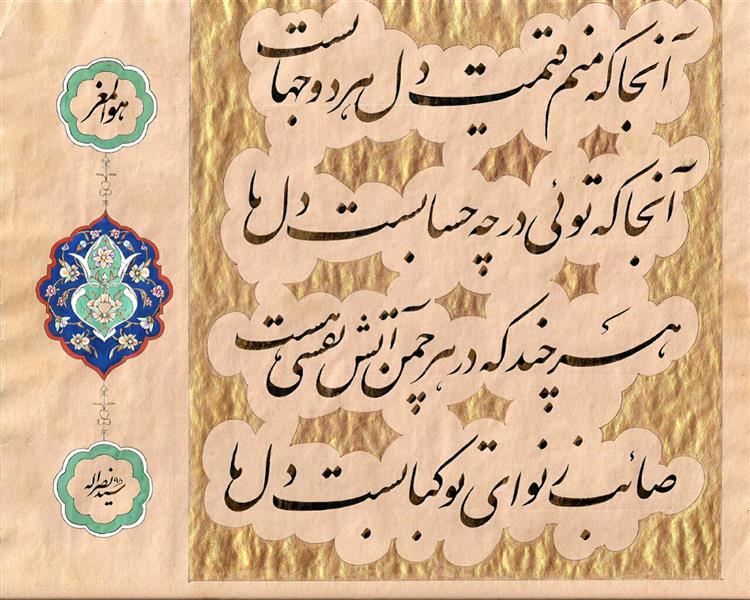 آنجا که منم قیمت دل هر دو جهانست
آنجا که توئی در چه حسابست دل ها
هر چند که در هر چمن آتش نفسی هست
صائب ز نوای تو کبابست دل ها
هوالمعز
سید نصراله ۹۵